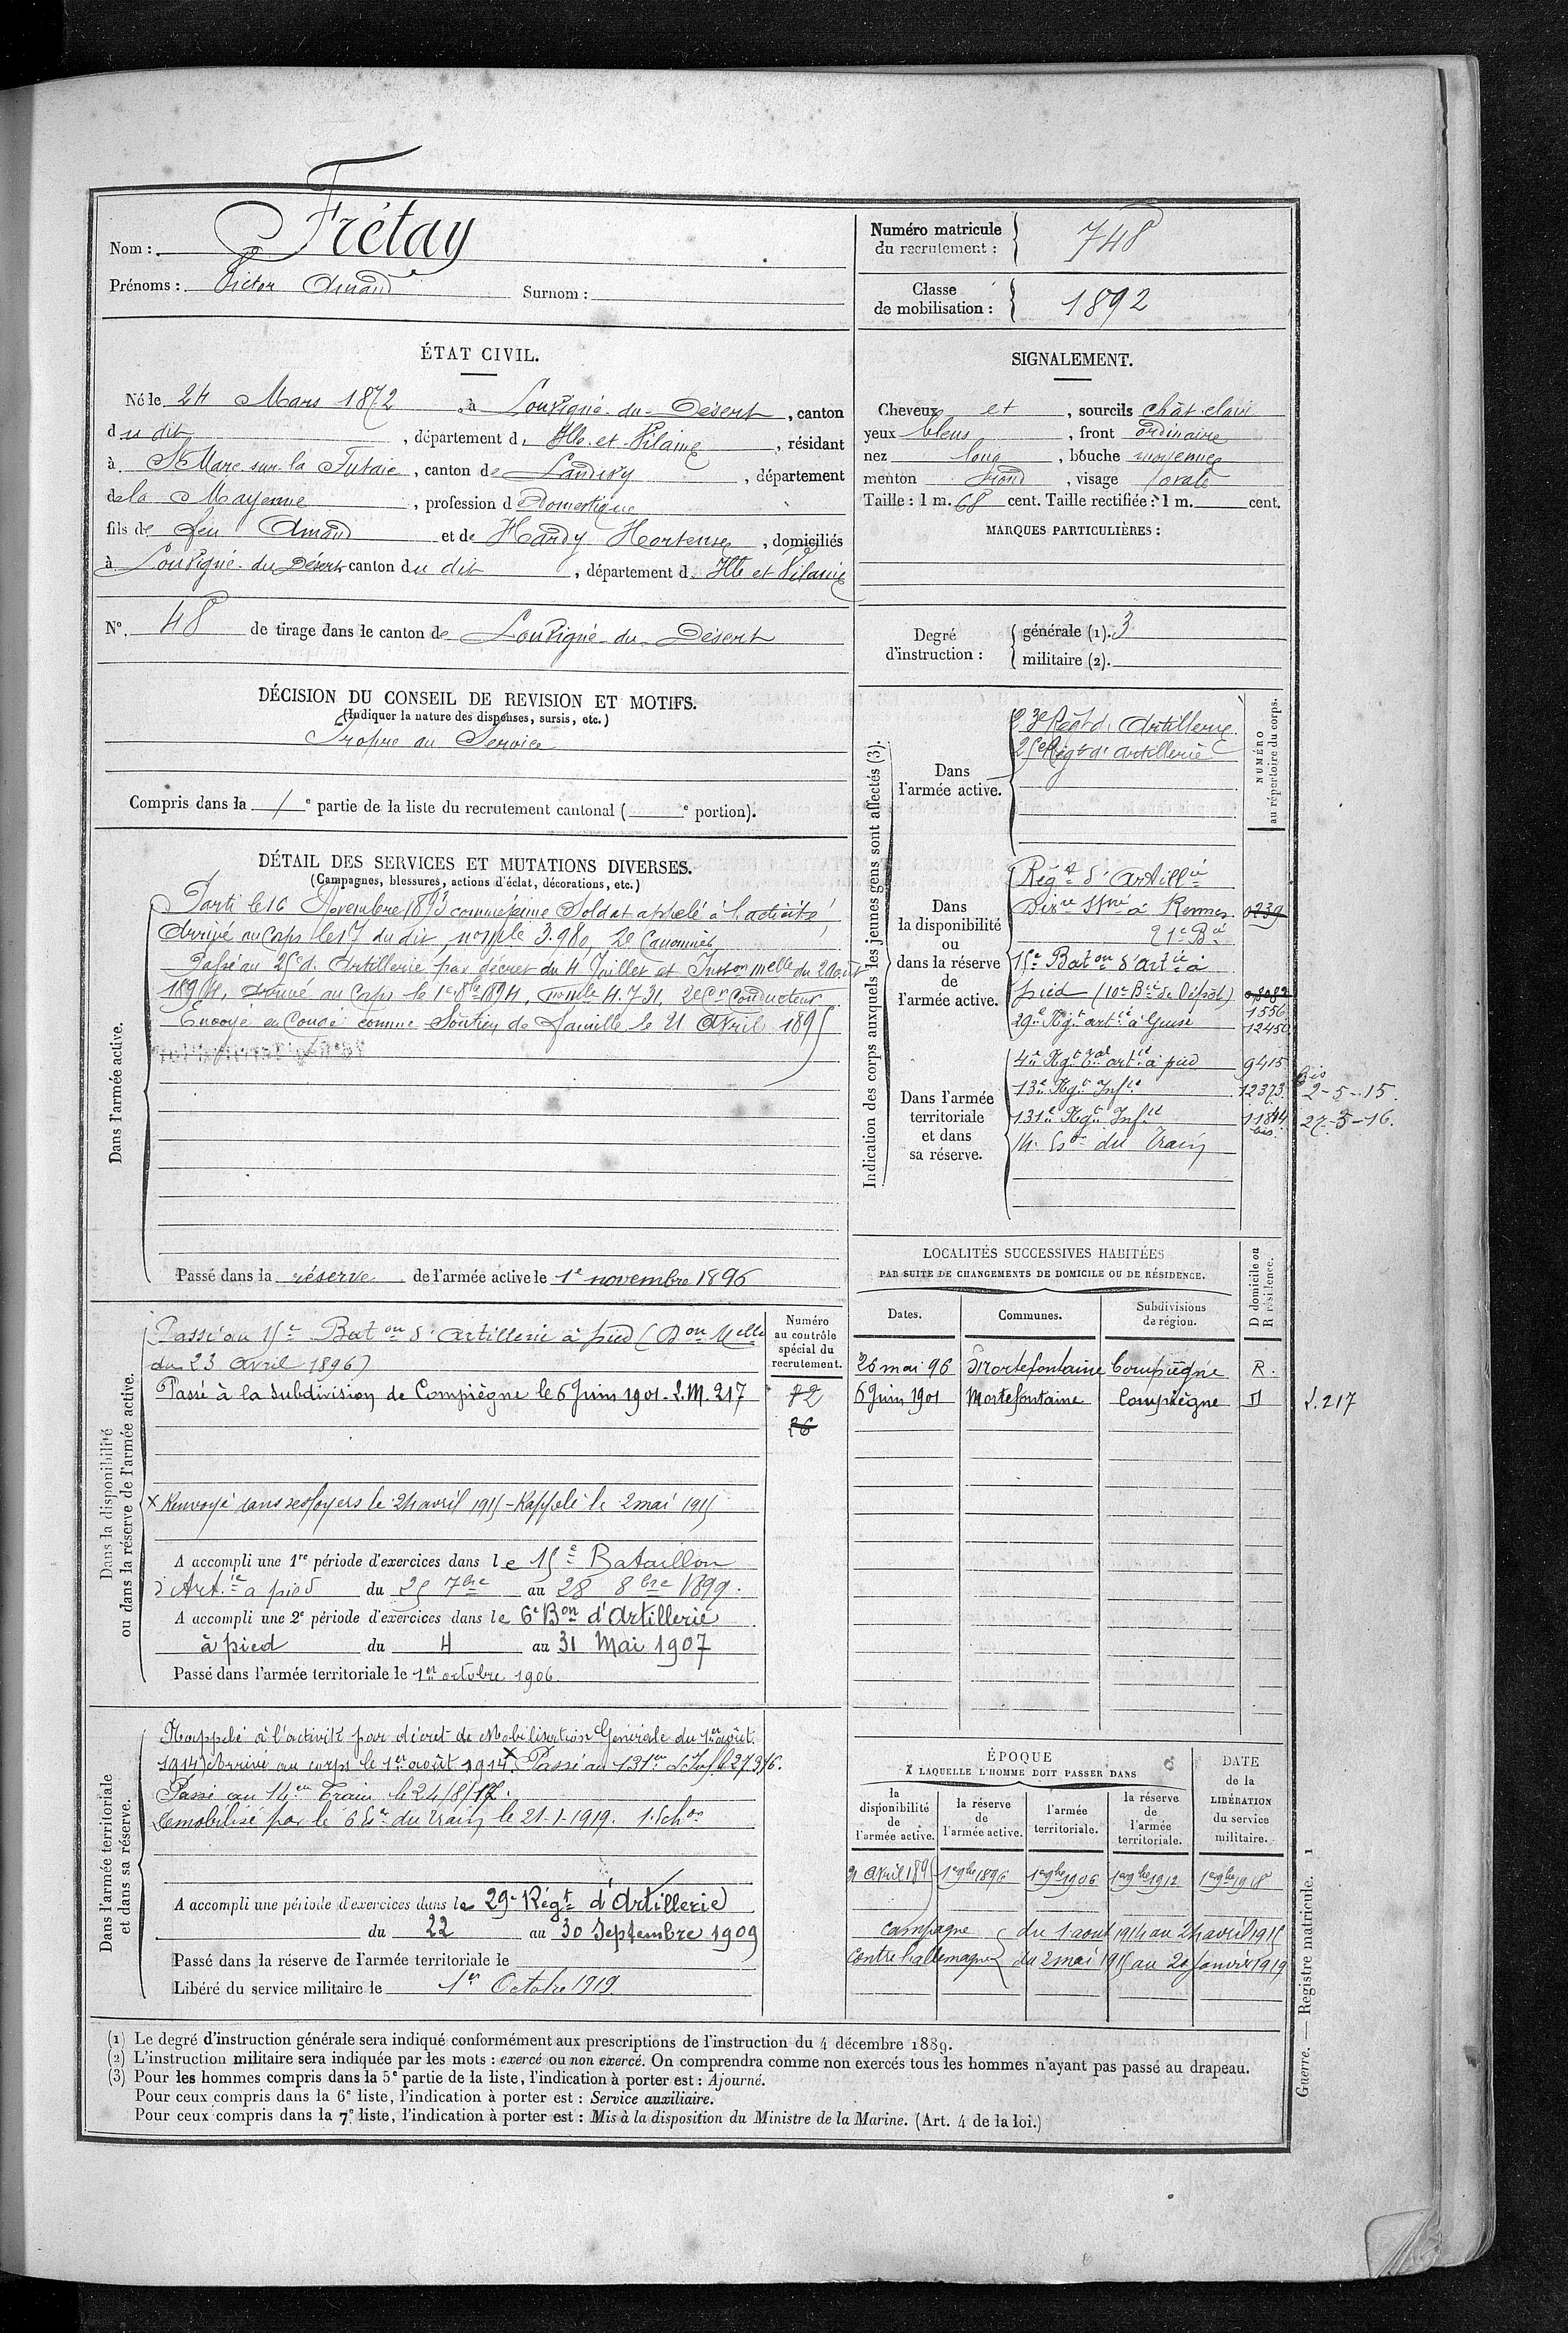 Nom : Frétay
Prénoms : Victor Amand Surnom :
Numéro matricule du recrutement : 748
Classe de mobilisation : 1892
ÉTAT CIVIL.
Né le 24 Mars 1872, à Louvigné-du-Désert, canton
du dit, département d'Ille-et-Vilaine, résidant
à St Mars sur la Futaie, canton de Landivy, département
de la Mayenne, profession de Domestique
fils de feu Amand et de Hardy Hortense, domiciliés
à Louvigné-du-Désert canton du dit, département d. Ille et Vilaine
N°. 48 de tirage dans le canton de Louvigné-du-Désert
SIGNALEMENT.
Cheveux et, sourcils chât. clair
yeux bleus, front ordinaire
nez long, bouche moyenne
menton rond, visage ovale
Taille : 1 m. 68 cent. Taille rectifiée : 1 m. cent.
MARQUES PARTICULIÈRES :
Degré d'instruction : générale (1). 3
militaire (2).
DÉCISION DU CONSEIL DE REVISION ET MOTIFS.
(Indiquer la nature des dispenses, sursis, etc.)
Propre au Service
Compris dans la 1e partie de la liste du recrutement cantonal ( e portion).
DÉTAIL DES SERVICES ET MUTATIONS DIVERSES.
(Campagnes, blessures, actions d'éclat, décorations, etc.)
Dans l'armée active.
Parti le 16 Novembre 1893 comme jeune Soldat appelé à l'activité
Arrivé au Corps le 17 du dit, no mle 3.980, 2e Canonnier
Passé au 25e d'Artillerie par décret du 4 Juillet et Inston melle du 2 août
1894, arrivé au Corps le 1e 8bre 1894, no mle 4.731, 2e Cr Conducteur
Envoyé en Congé comme Soutien de famille le 21 Avril 1895
Passé dans la réserve de l'armée active le 1e novembre 1896
Indication des corps auxquels les jeunes gens sont affectés (3).
NUMÉRO au répertoire du corps.
Dans l'armée active.
Régt d'Artillerie
25e Régt d'Artillerie
Dans la disponibilité ou dans la réserve de l'armée active.
Régt d'Artillie
à Rennes 0239
21e Bie
15e Baton d'Artie à
pied (10e Bie de Dépôt)
1556
29e Rgt artie à Guise 12450
Dans l'armée territoriale et dans sa réserve.
4e Rgt artie à pied 9415
13e Rgt Infie 12373 bis 2-5-15.
131e Rgt Infie 11844 bis. 27-3-16.
14e Eson du Train
Dans la disponibilité ou dans la réserve de l'armée active.
Numéro au contrôle spécial du recrutement.
Passé au 15e Baton d'artillerie à pied (Don Melle
du 23 avril 1896)
Passé à la subdivision de Compiègne le 6 Juin 1901. L.M. 217
72
26
x Renvoyé dans ses foyers le 24 avril 1915 - Rappelé le 2 mai 1915
A accompli une 1re période d'exercices dans le 15e Bataillon
d'Artie à pied du 25 7bre au 28 8bre 1899.
A accompli une 2e période d'exercices dans le 6e Bon d'Artillerie
à pied du 4 au 31 Mai 1907
Passé dans l'armée territoriale le 1er octobre 1906.
LOCALITÉS SUCCESSIVES HABITÉES
PAR SUITE DE CHANGEMENTS DE DOMICILE OU DE RÉSIDENCE.
Dates. Communes. Subdivisions de région. D domicile ou R résidence.
26 mai 96 Mortefontaine Compiègne R.
6 Juin 1901 Mortefontaine Compiègne D L.217
Dans l'armée territoriale et dans sa réserve.
Rappelé à l'activité par décret de Mobilisation Générale du 1er août
1914. Arrivé au corps le 1er août 1914 x Passé au 131e d'Inf. le 27 3 16.
Passé au 14e Train le 24/8/17.
Démobilisé par le 6e Eson du train le 21-1-1919.
A accompli une période d'exercices dans le 29e Régt d'Artillerie
du 22 au 30 Septembre 1909
Passé dans la réserve de l'armée territoriale le
Libéré du service militaire le 1er Octobre 1919
ÉPOQUE À LAQUELLE L'HOMME DOIT PASSER DANS
la disponibilité de l'armée active. la réserve de l'armée active. l'armée territoriale. la réserve de l'armée territoriale. DATE de la LIBÉRATION du service militaire.
21 Avril 1895 1e 9bre 1896 1e 9bre 1906 1e 9bre 1912 1e 9bre 1918
Campagne du 1 aout 1914 au 24 avril 1915
Contre l'allemagne du 2 mai 1915 au 20 janvier 1919
(1) Le degré d'instruction générale sera indiqué conformément aux prescriptions de l'instruction du 4 décembre 1889.
(2) L'instruction militaire sera indiquée par les mots : exercé ou non exercé. On comprendra comme non exercés tous les hommes n'ayant pas passé au drapeau.
(3) Pour les hommes compris dans la 5e partie de la liste, l'indication à porter est : Ajourné.
Pour ceux compris dans la 6e liste, l'indication à porter est : Service auxiliaire.
Pour ceux compris dans la 7e liste, l'indication à porter est : Mis à la disposition du Ministre de la Marine. (Art. 4 de la loi.)
Guerre. — Registre matricule. 1